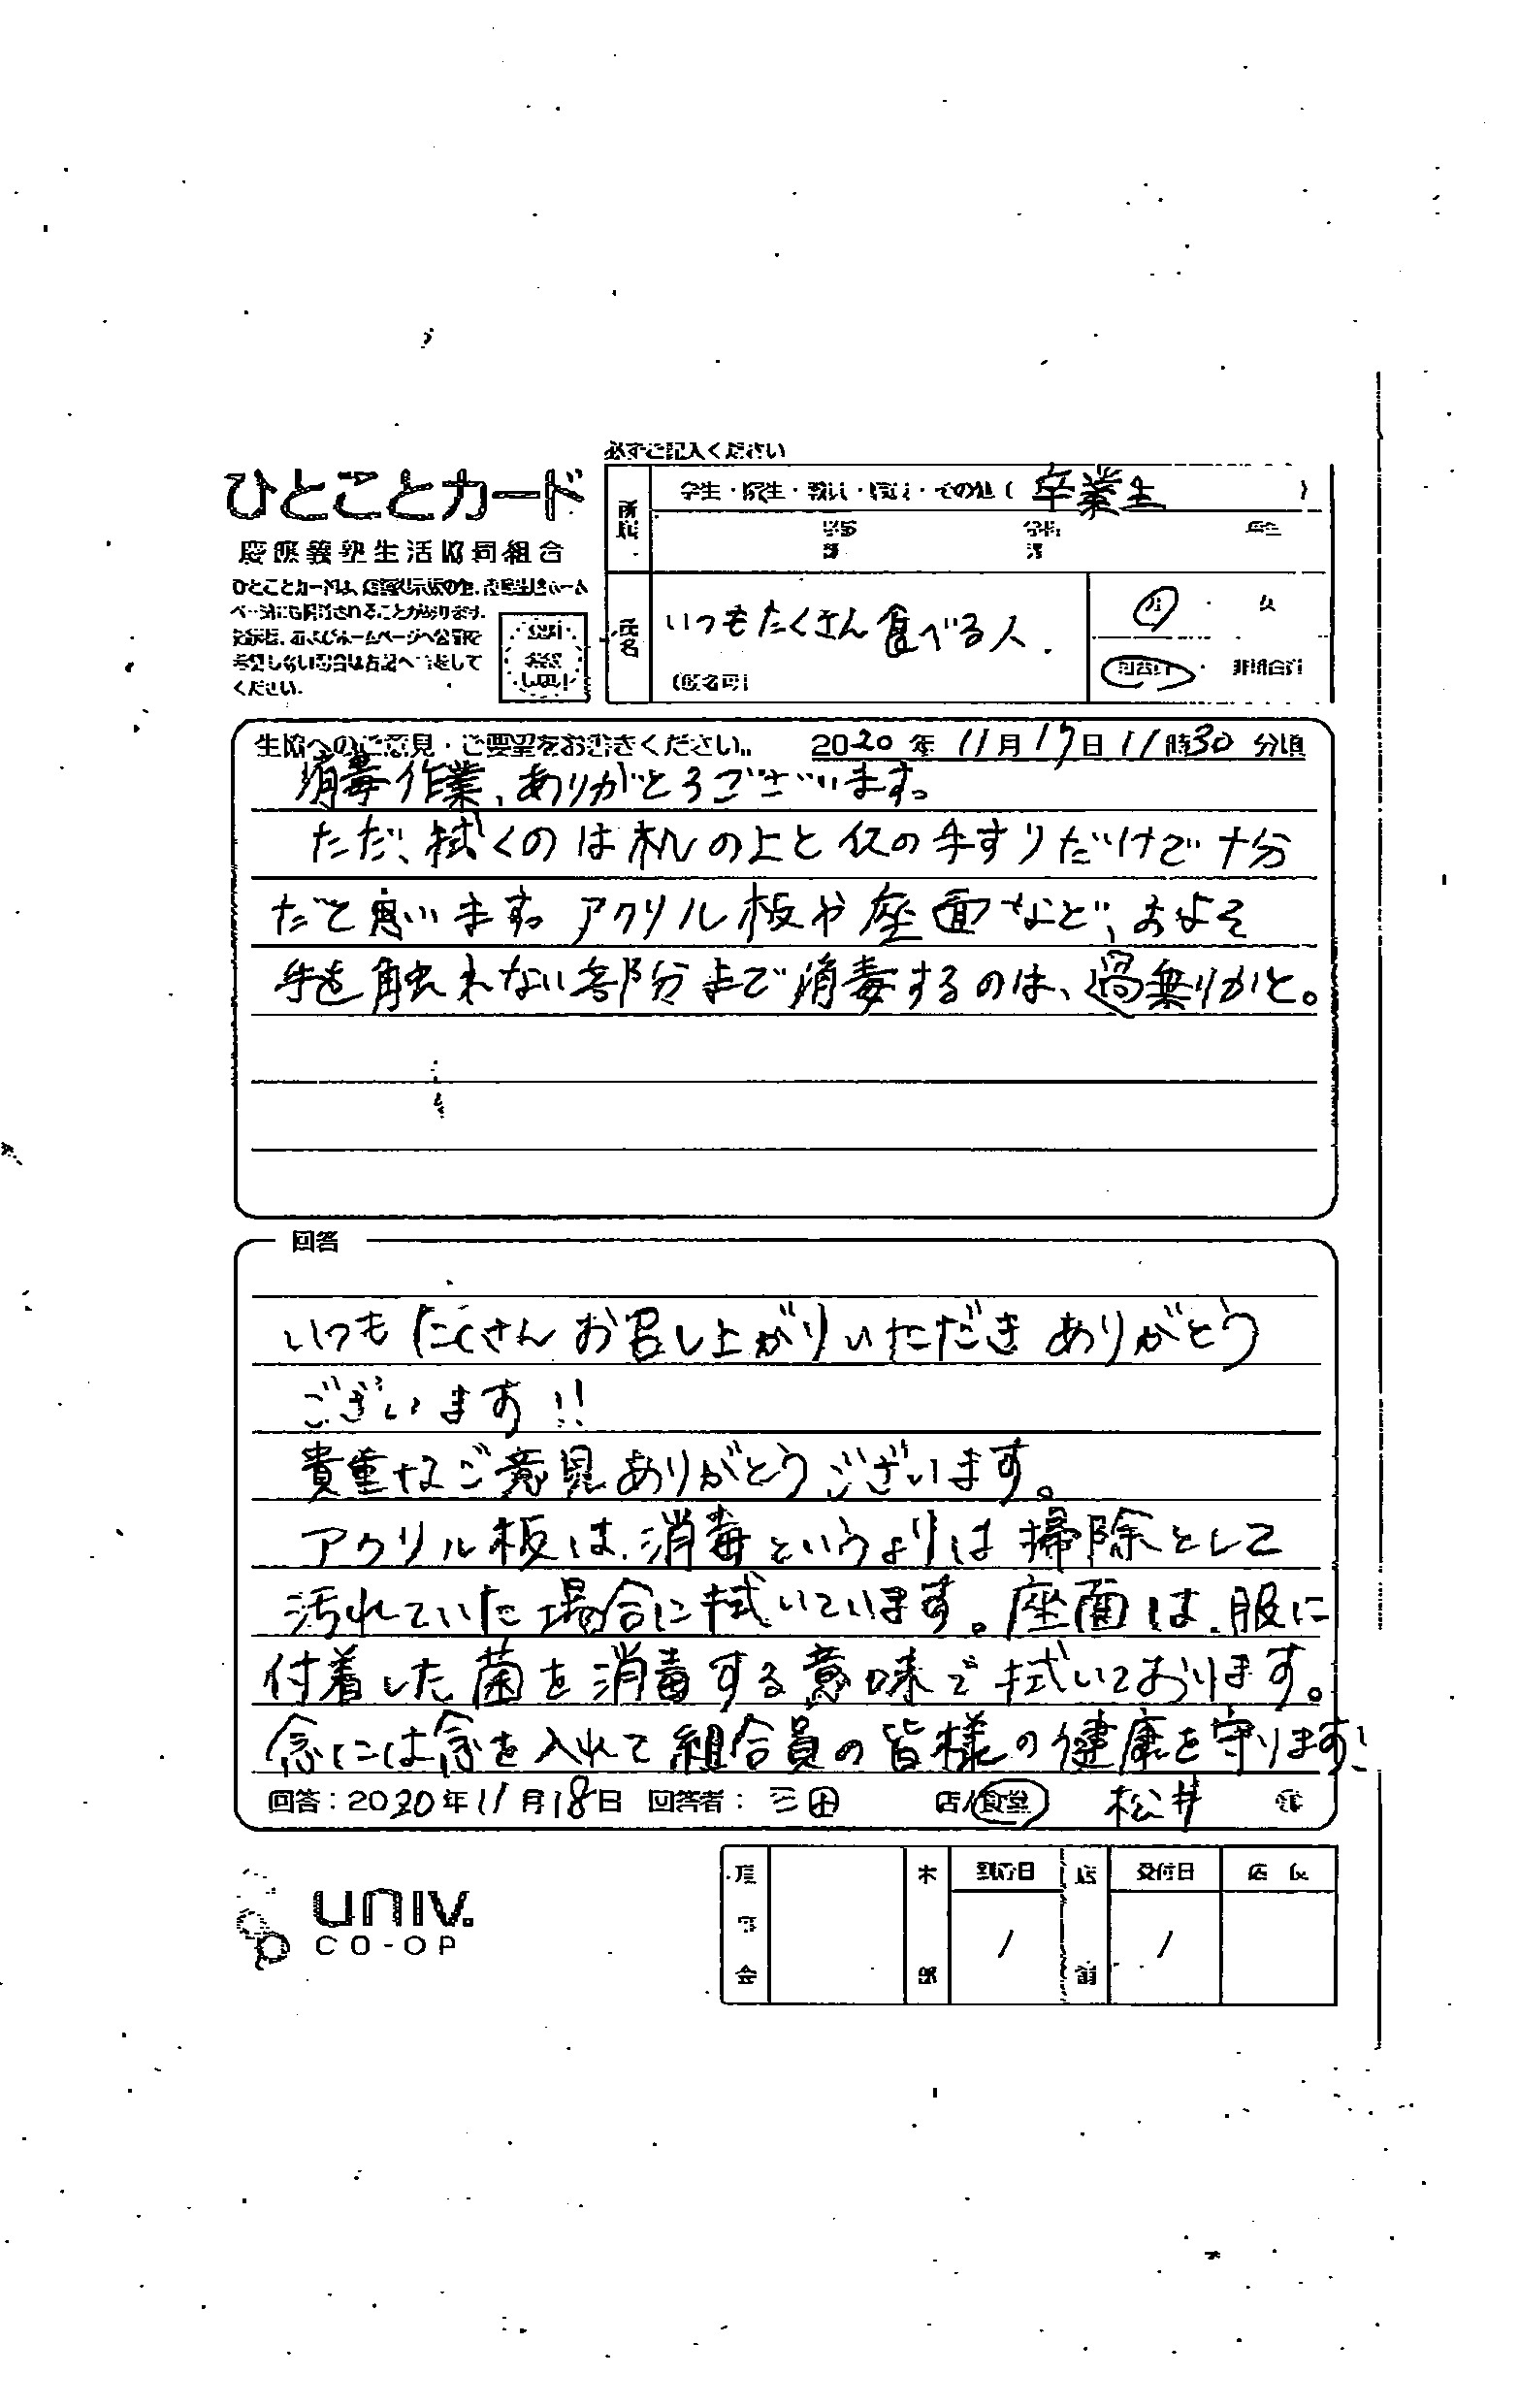 必ずご記入ください
ひとことカード
慶應義塾生活協同組合
所属
学生・院生・教員・職員・その他（卒業生）
学部
年生
ひとことカードは、
ください。
氏名
いつもたくさん食べる人.
（匿名可）
男・女
組合員・非組合員
生協へのご意見・ご要望をお書きください。 2020年11月17日11時30分頃
消毒作業、ありがとうございます。
ただ、拭くのは机の上とイスの手すりだけで十分
だと思います。アクリル板や座面など、およそ
手を触れない部分まで消毒するのは、過乗りかと。
回答
いつもたくさんお召し上がりいただきありがとう
ございます!!
貴重なご意見ありがとうございます。
アクリル板は、消毒というよりは掃除として
汚れていた場合に拭いています。座面は、服に
付着した菌を消毒する意味で拭いております。
念には念を入れて組合員の皆様の健康を守ります!
回答：2020年11月18日 回答者：三田 店/食堂 松井
univ.
CO-OP
理事会
本部
到着日
店前
受付日
店長
/
/